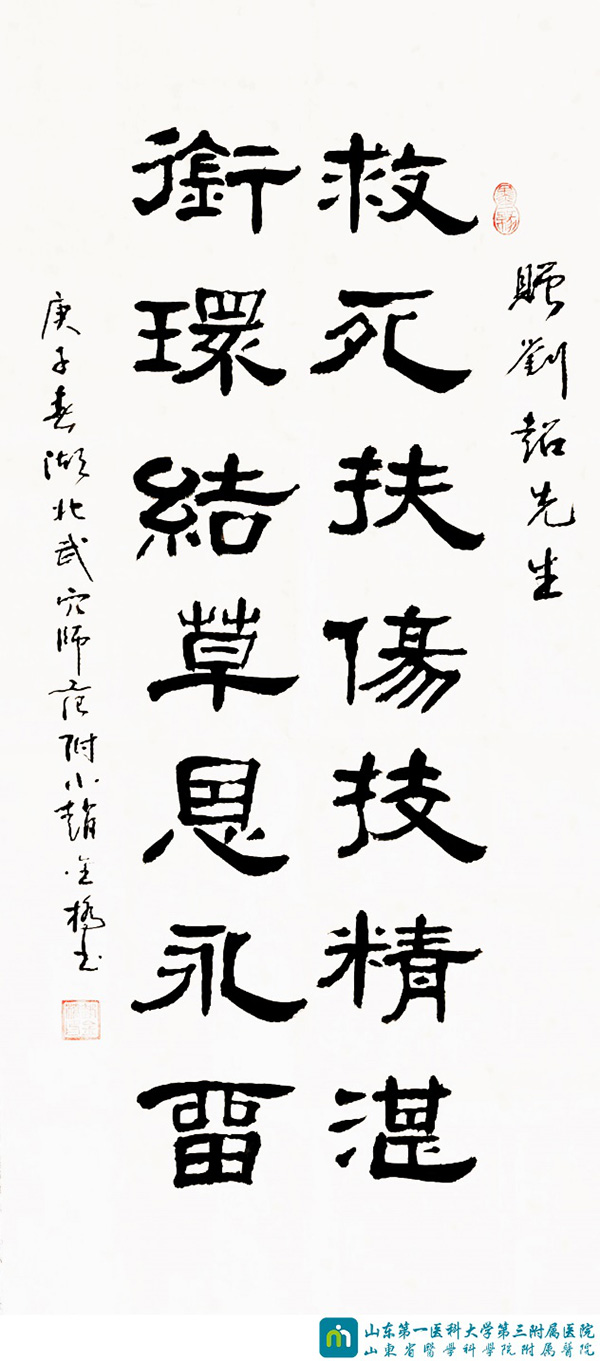 赠劉韜先生
救死扶傷技精湛
銜環結草恩永畱
庚子春湖北武穴師范附小趙金橋书
山东第一医科大学第三附属医院
山東省醫學科學院附属醫院